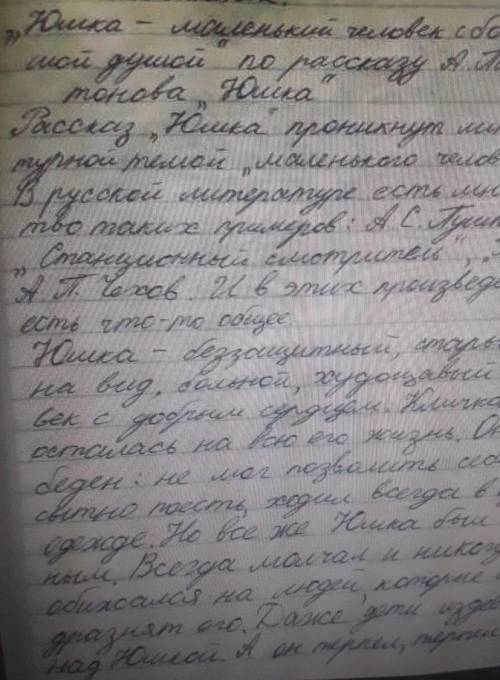 „Юшка – маленький человек с бо
шой душой" по рассказу А. П
тонова „Юшка"
Рассказ „Юшка" проникнут ли
турной темой „маленького челов
В русской литературе есть мн
тво таких примеров: А. С. Пушк
„Станционный смотритель", „
А. П. Чехов. И в этих произвед
есть что-то общее.
Юшка – беззащитный, стары
на вид, больной, худощавый
век с добрым сердцем. Кличка
осталась на всю его жизнь. Он
беден: не мог позволить себ
сытно поесть, ходил всегда в
одежде. Но все же Юшка был
ным. Всегда молчал и никог
обижался на людей, которые
дразнят его. Даже дети издев
над Юшкой. А он терпел, терпел